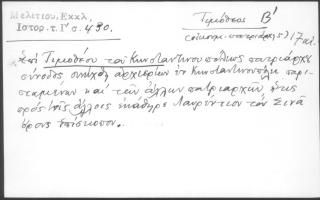 Μελετίου, Εκκλ,
Ιστορ. τ. Γ' σ. 490.
Τιμόθεος Β'
17 αι.
Επί Τιμοθέου του Κωνσταντινουπόλεως πατριάρχου
σύνοδος αρχιερέων εν Κωνσταντινουπόλει παρι-
σταμένων και των άλλων πατριαρχών ήτις
προς τοις άλλοις καθήρε Λαυρέντιον τον Σινά
όρους επίσκοπον.